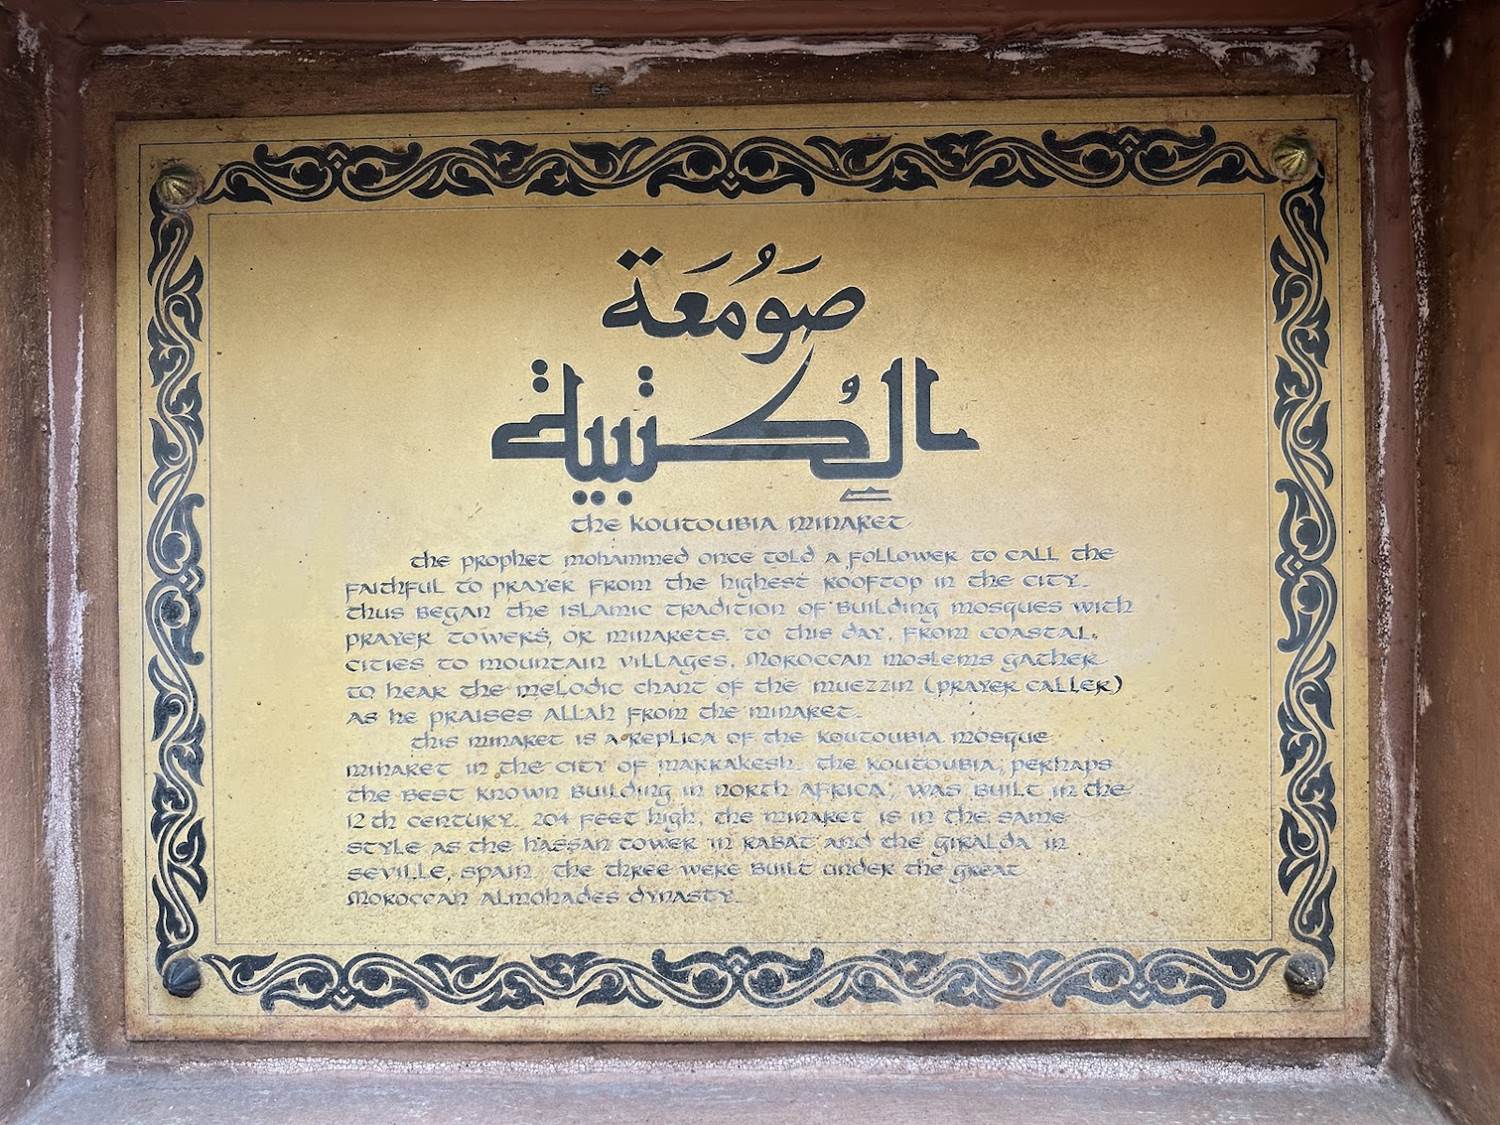 صَومُعَة
الكُتبية
The Koutoubia Minaret
The prophet Mohammed once told a follower to call the
faithful to prayer from the highest rooftop in the city.
Thus began the Islamic tradition of building mosques with
prayer towers, or minarets. To this day, from coastal
cities to mountain villages, Moroccan Moslems gather
to hear the melodic chant of the muezzin (prayer caller)
as he praises Allah from the minaret.
This minaret is a replica of the Koutoubia Mosque
minaret in the city of Marrakesh. The Koutoubia, perhaps
the best known building in North Africa, was built in the
12th century. 204 feet high, the minaret is in the same
style as the Hassan Tower in Rabat and the Giralda in
Seville, Spain. The three were built under the great
Moroccan Almohades dynasty.